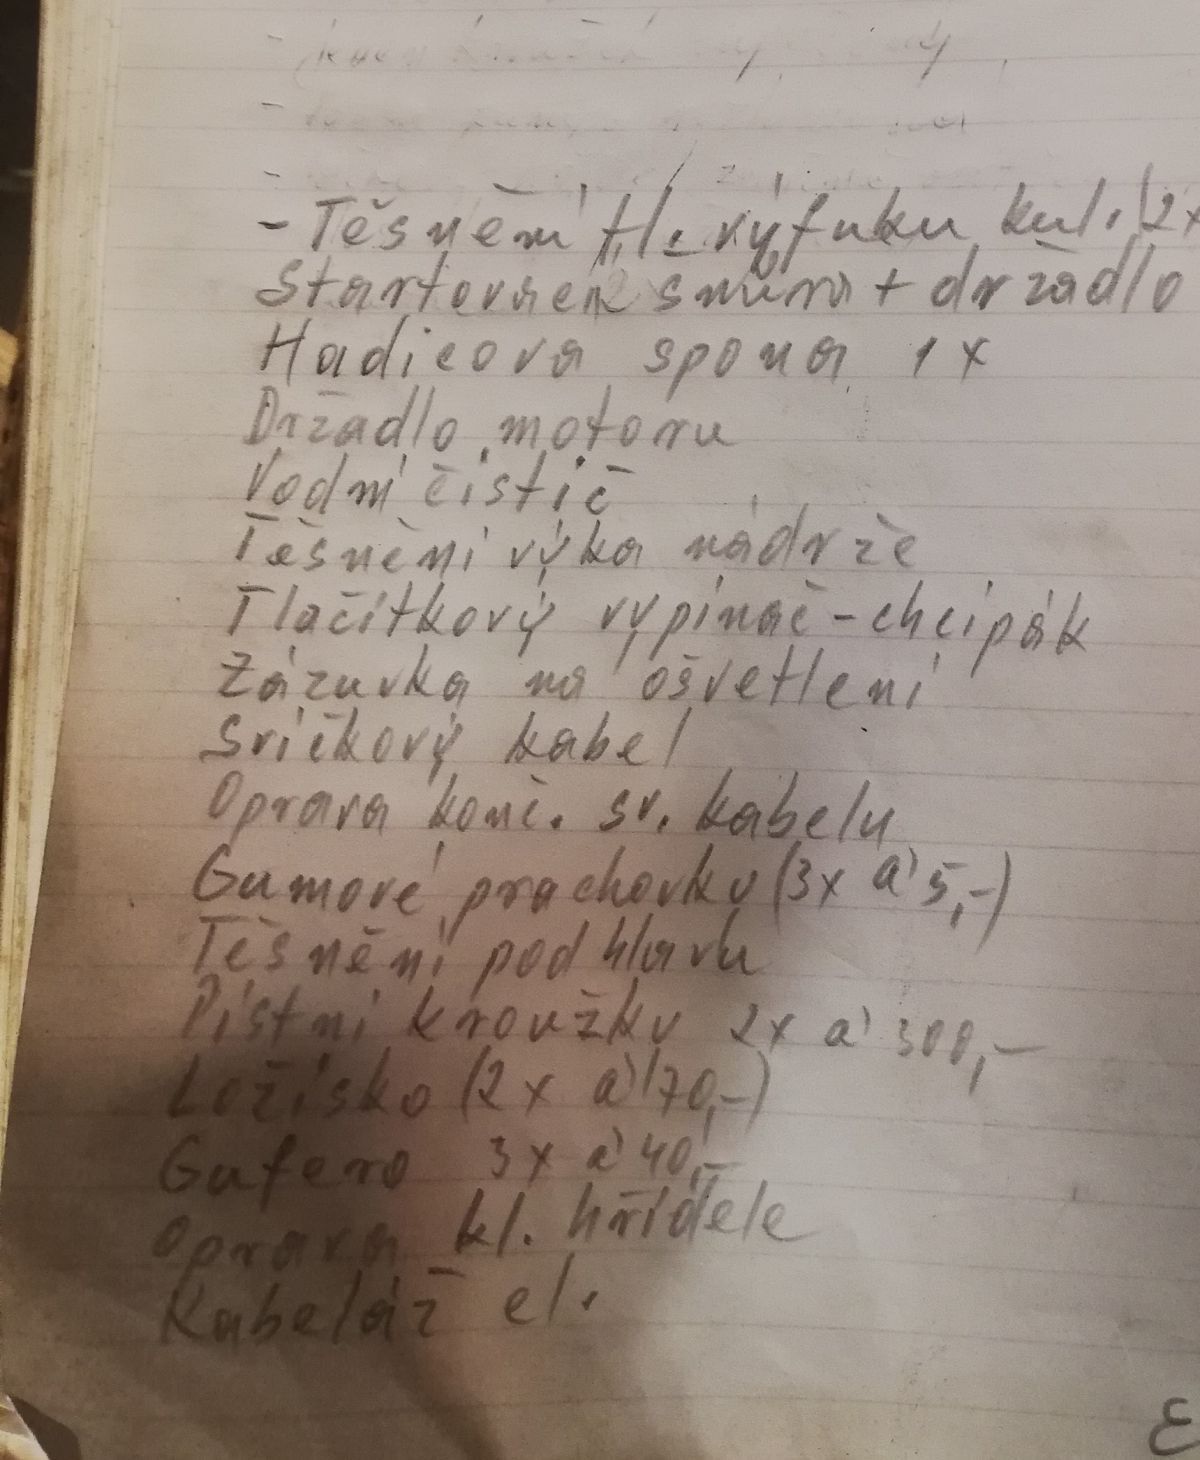 - Těsnění tl. výfuku kul. (2x
Startovací šnůra + držadlo
Hadicova spona 1x
Držadlo motoru
Vodní čistič
Těsnění výka nádrže
Tlačítkový vypínač - chcipák
Zázuvka na ošvetlení
Svíčkový kabel
Oprava konč. sv. kabelu
Gumové prachovky (3x a' 5,-)
Těsnění pod hlavu
Pístní kroužky 2x a' 300,-
Ložisko (2x a' 170,-)
Gufero 3x a' 40,-
Oprava kl. hřídele
Kabeláž el.